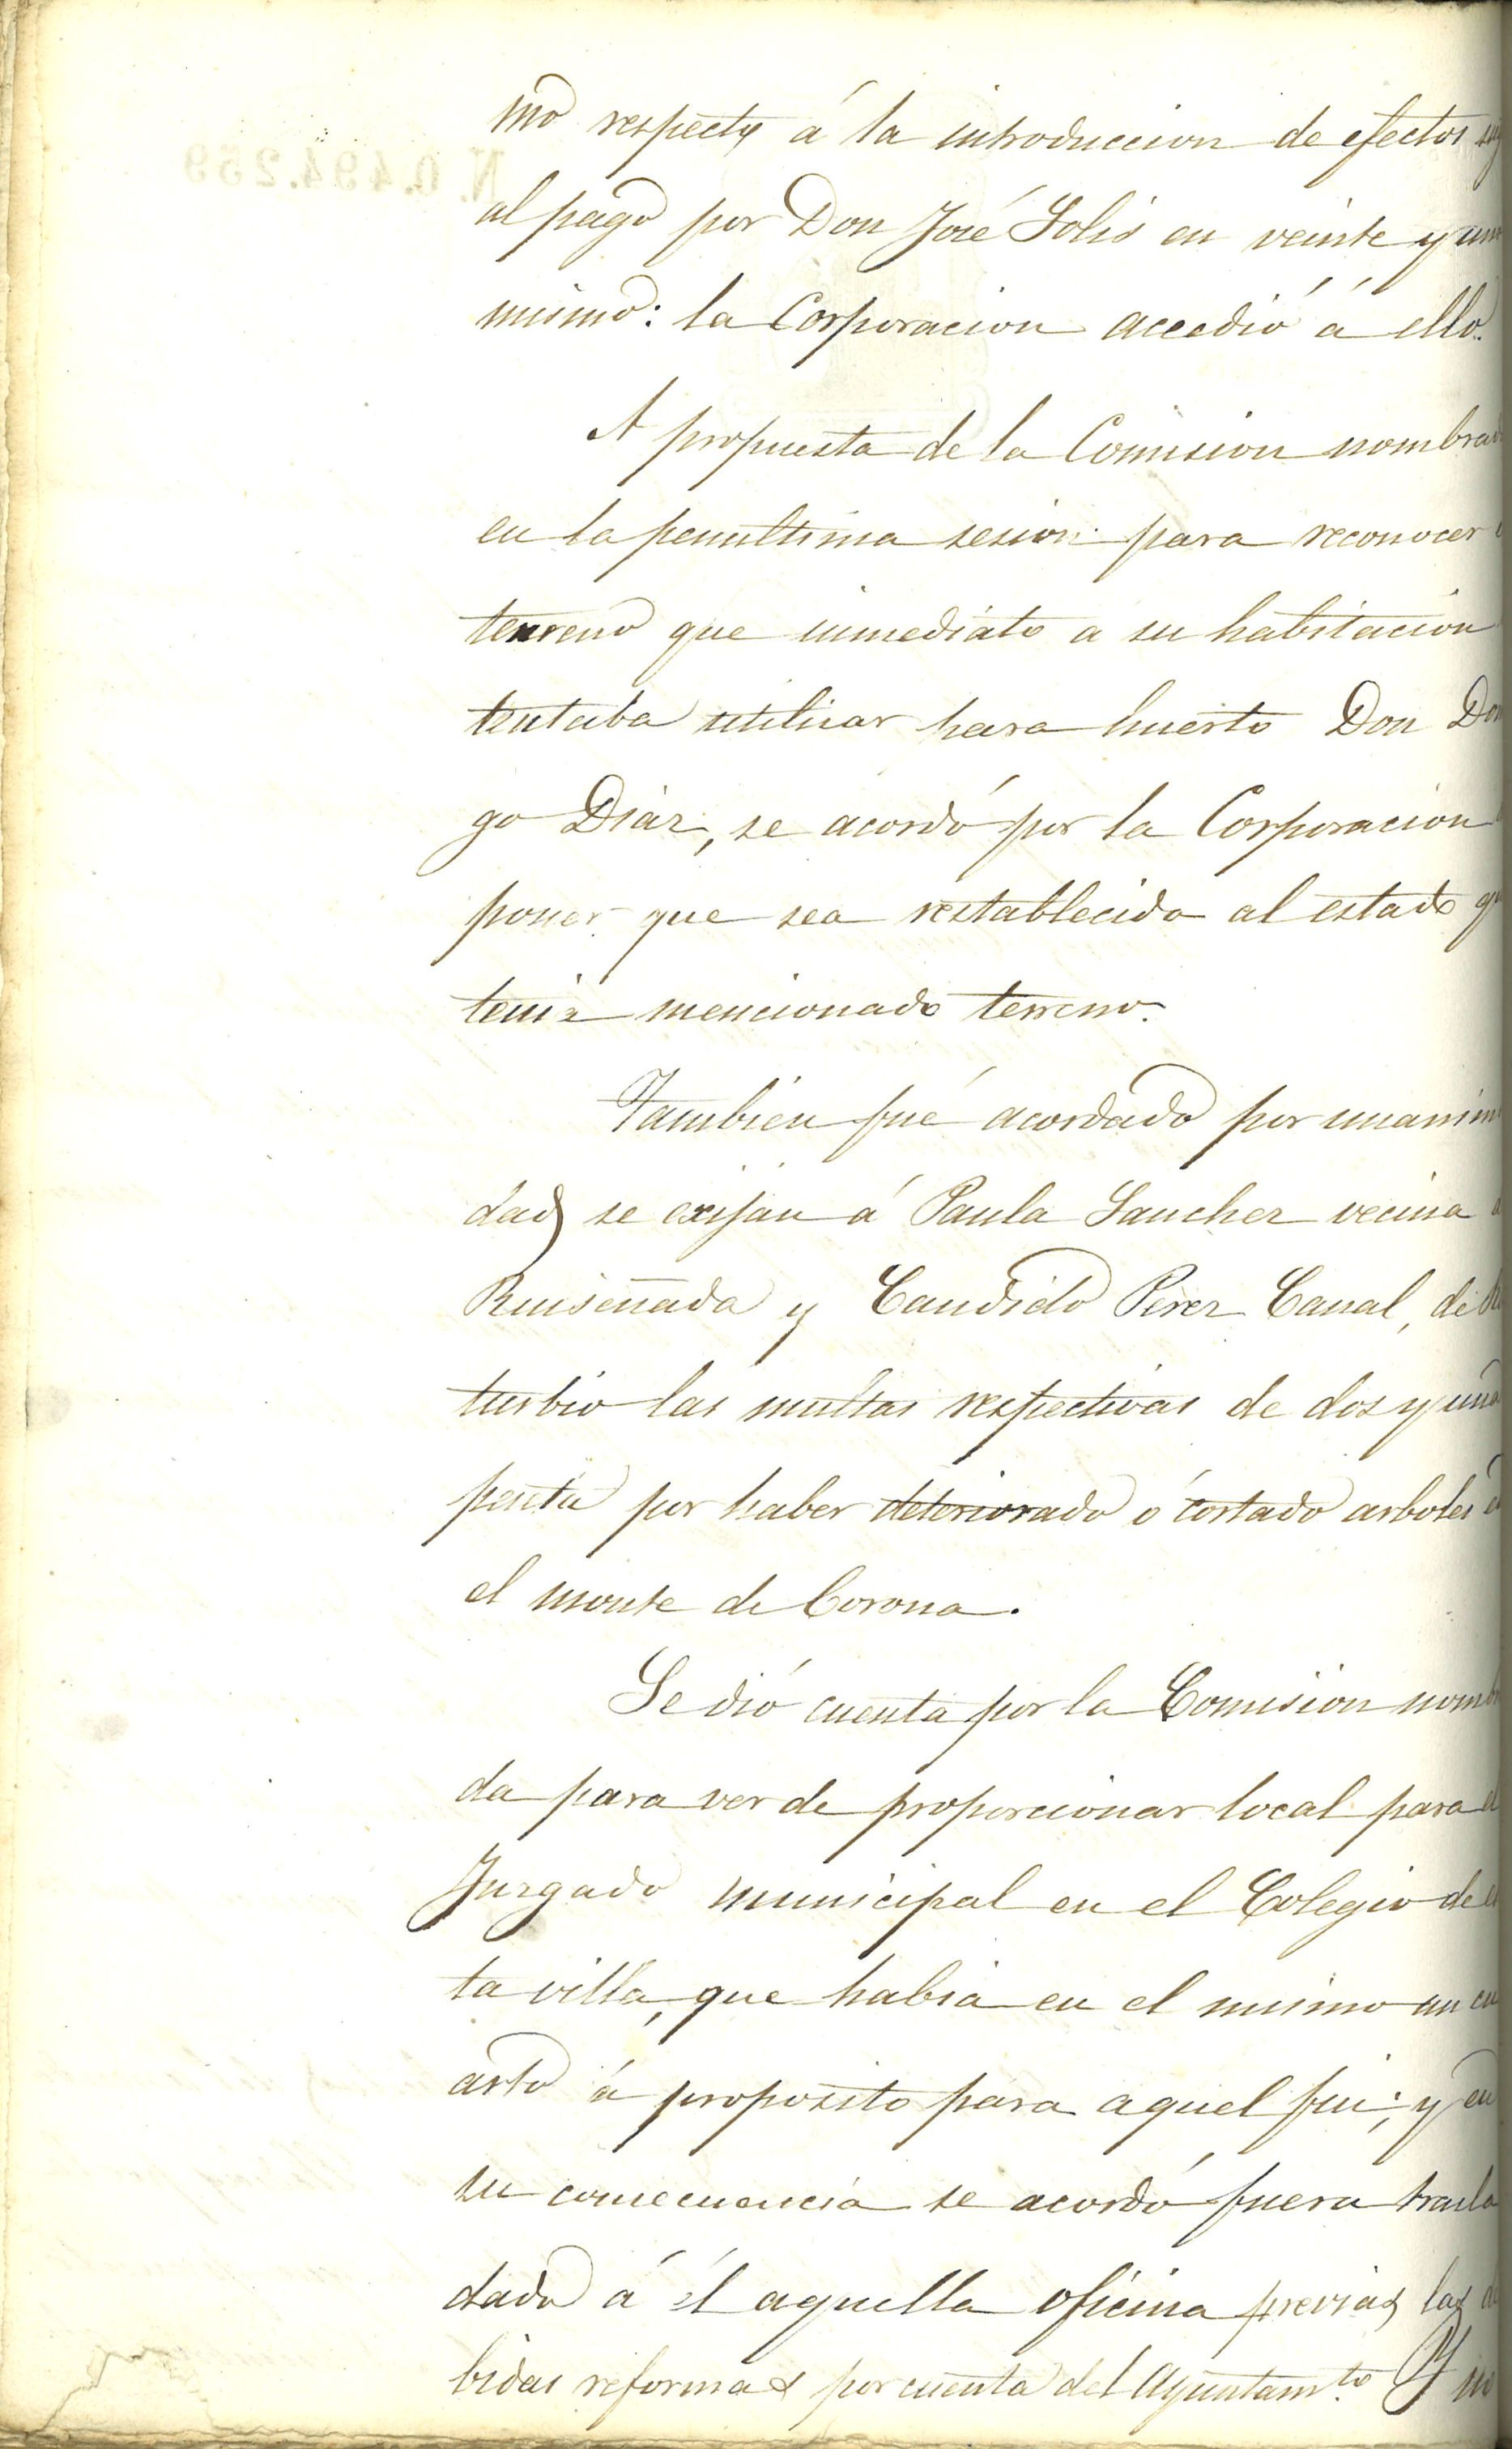 N. 0.494.259
mo respecto á la introduccion de efectos suj
al pago por Don José Solis en veinte y uno
mismo: la Corporacion accedió á ello.
A propuesta de la Comision nombrad
en la penultima sesion para reconocer
terreno que inmediato a su habitacion
tentaba utilizar para huerto Don Dom
go Diaz, se acordó por la Corporacion
poner que sea restablecido al estado qu
tenia mencionado terreno.
Tambien fué acordado por unanimi
dad se exijan á Paula Sanchez vecina
Ruiseñada y Candido Perez Canal, de
turbio las multas respectivas de dos y una
peseta por haber deteriorado ó cortado arboles en
el monte de Corona.
Se dió cuenta por la Comision nombra
da para ver de proporcionar local para el
Juzgado municipal en el Colegio de es
ta villa, que habia en el mismo un cu
arto á proposito para aquel fin; y en
su consecuencia se acordó fuera trasla
dada á él aquella oficina previas las de
bidas reformas por cuenta del Ayuntamto. Y no